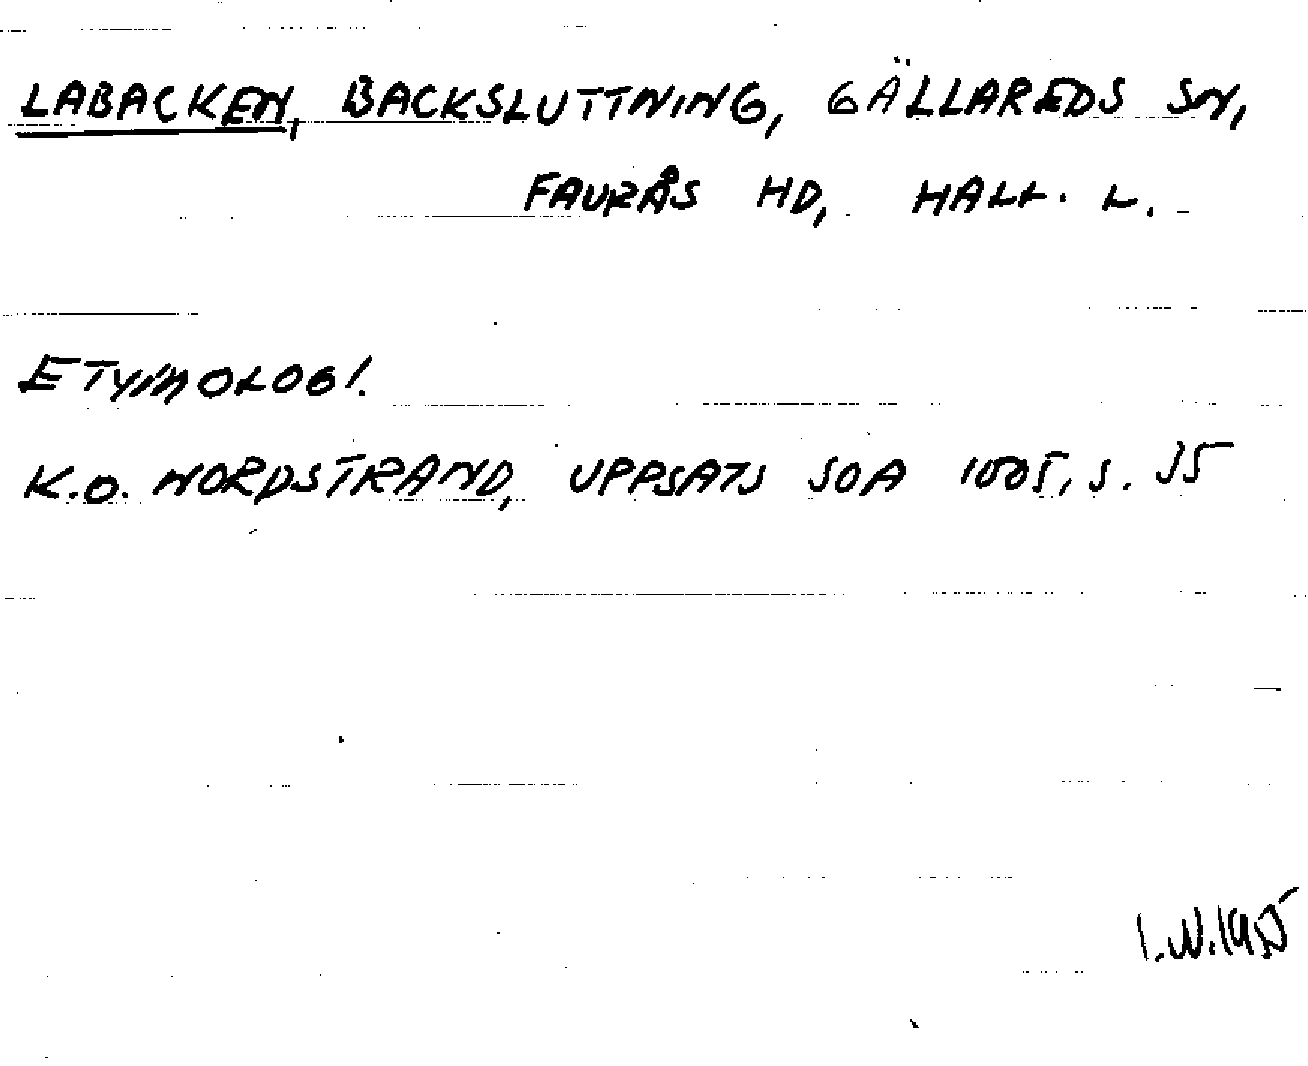 LABACKEN, BACKSLUTTNING, GÄLLAREDS SN,
FAURÅS HD, HALL. L.
ETYMOLOGI.
K.O. NORDSTRAND, UPPSATS SOA 1005, S. 35